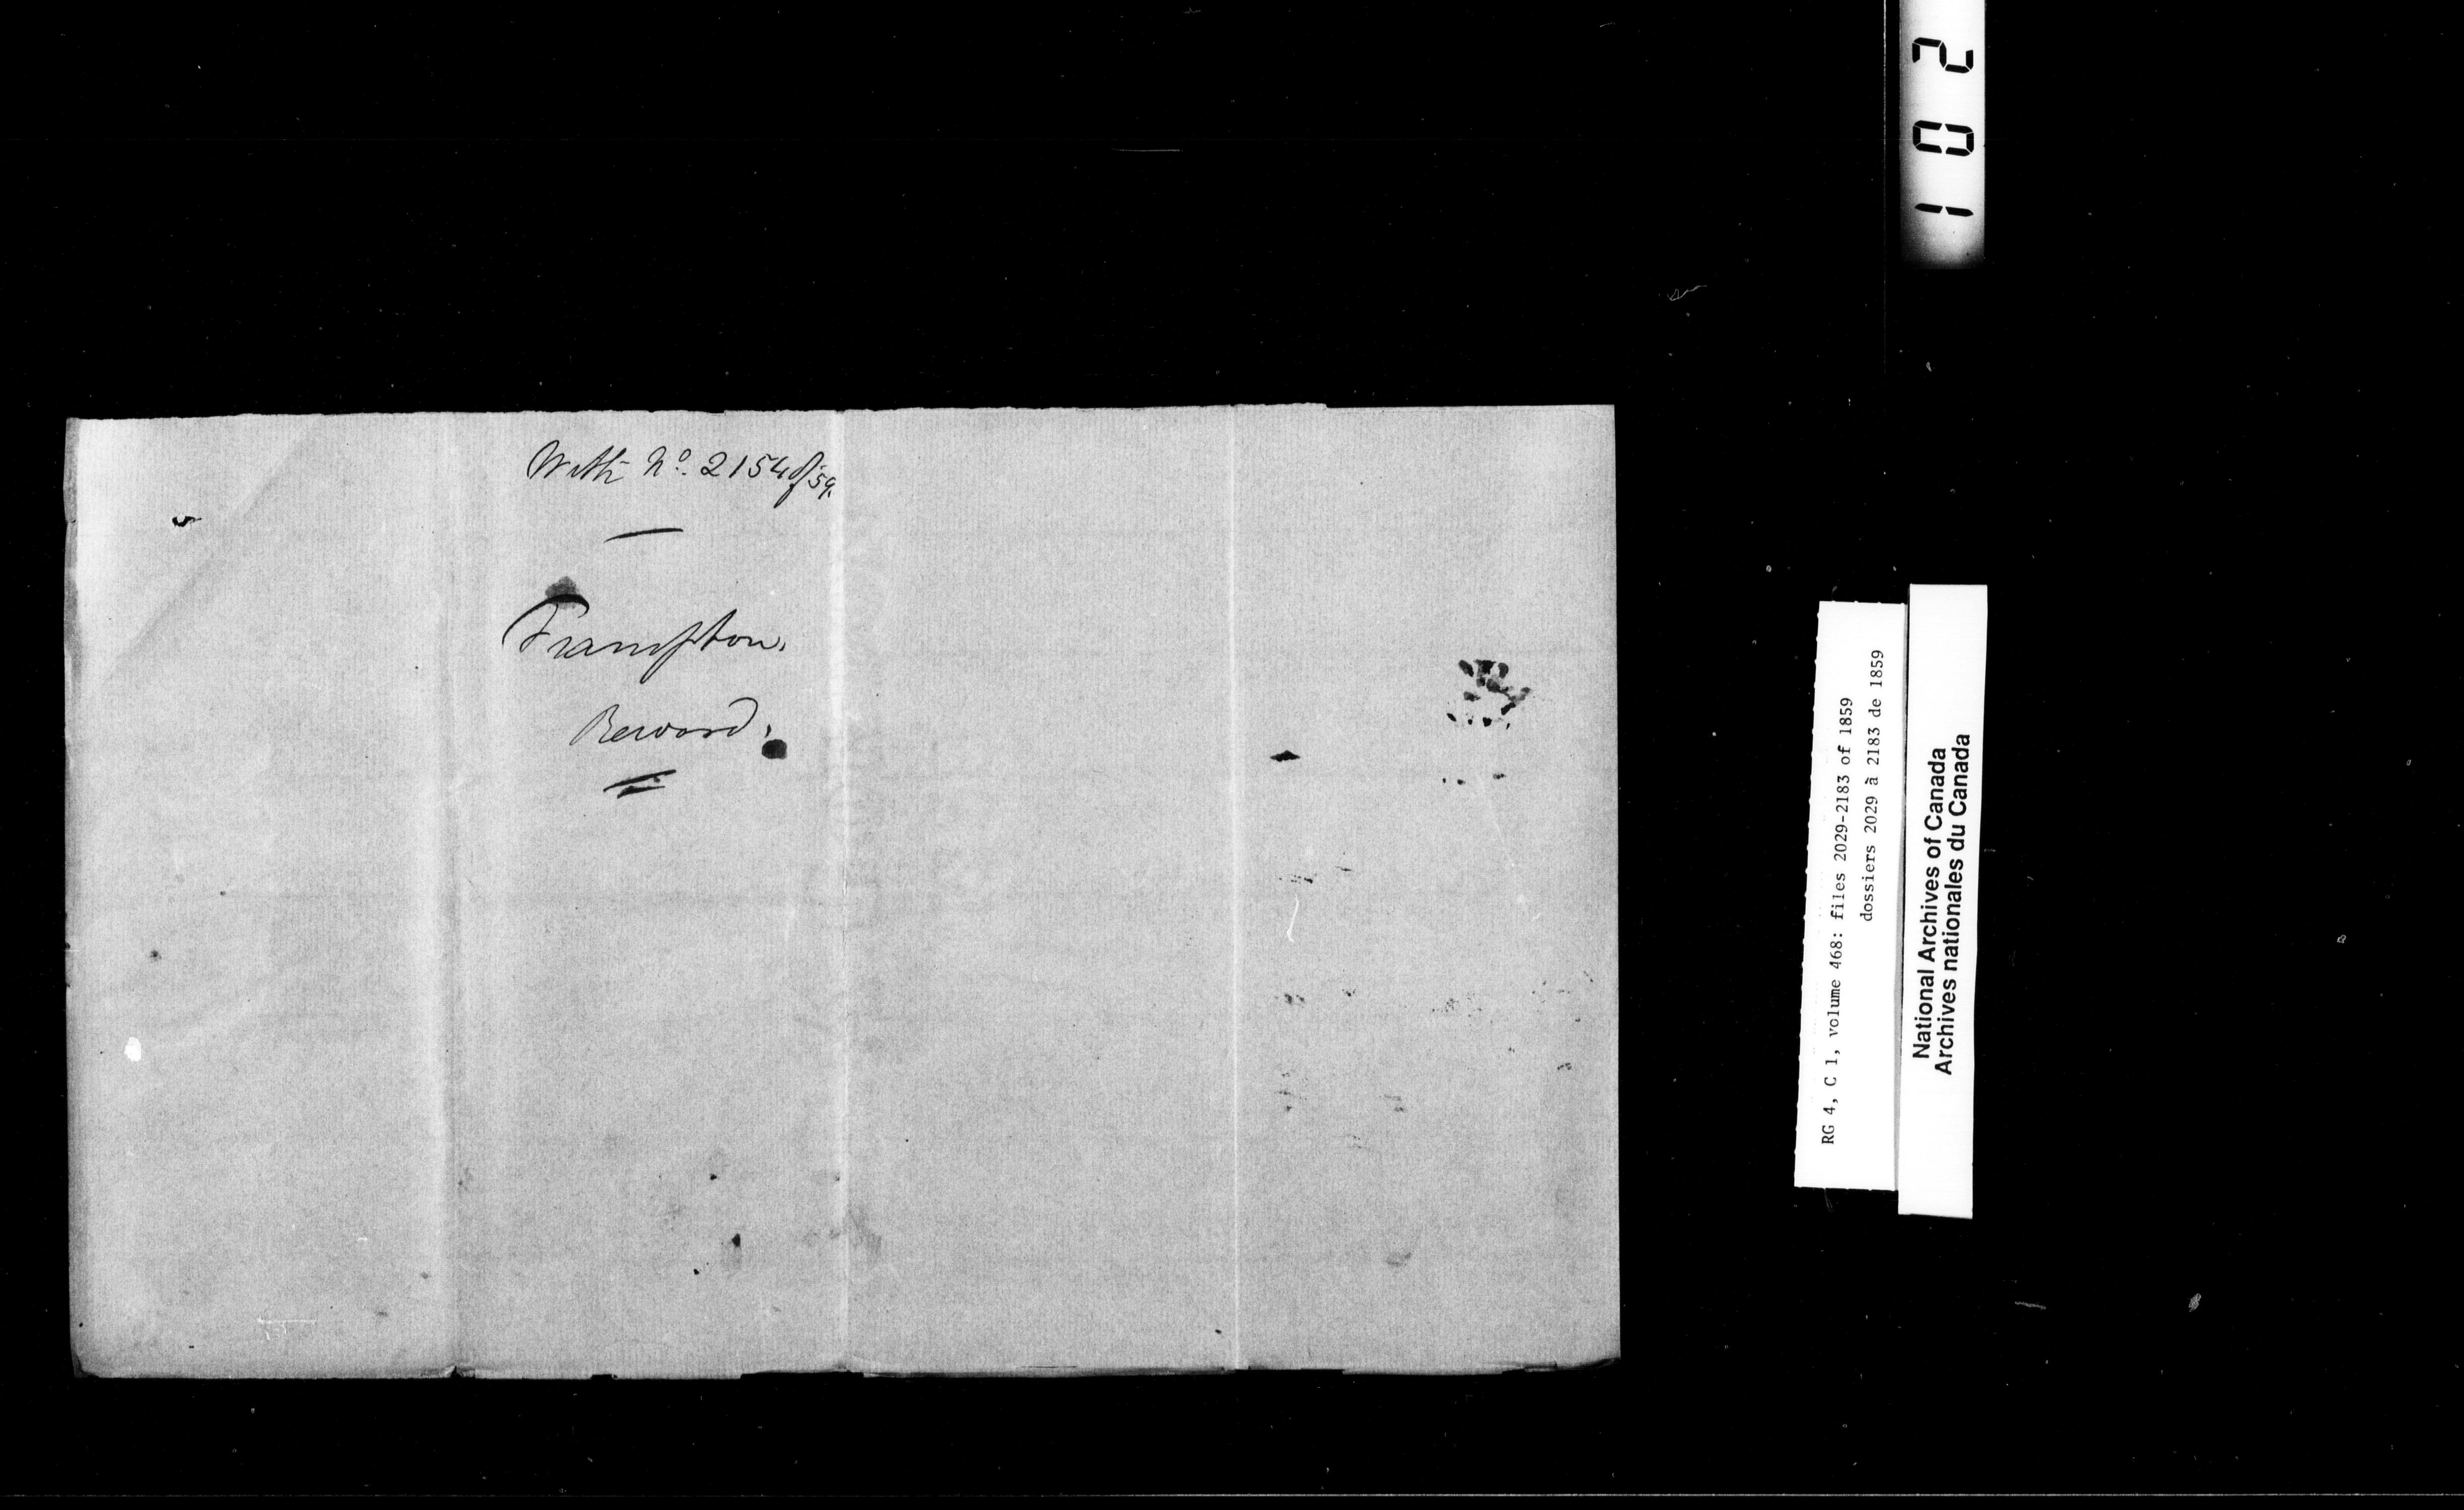 With No. 2154 of/59.
Frampton.
Reward.
102
RG 4, C 1, volume 468: files 2029-2183 of 1859
dossiers 2029 à 2183 de 1859
National Archives of Canada
Archives nationales du Canada